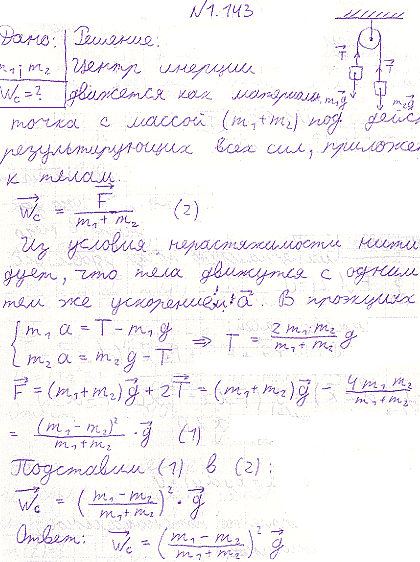 N1.143
Дано: Решение:
m₁; m₂ Центр инерции
W⃗c = ? движется как материаль
T⃗ T⃗
m₁g⃗ m₂g⃗
точка с массой (m₁+m₂) под дейс
результирующих всех сил, приложе
к телам.
W⃗c = F⃗/(m₁+m₂) (2)
Из условия нерастяжимости нити
дует, что тела движутся с одним
тем же ускорением a⃗. В проэкциях
{ m₁a = T - m₁g
{ m₂a = m₂g - T ⇒ T = 2m₁m₂/(m₁+m₂) g
F⃗ = (m₁+m₂)g⃗ + 2T⃗ = (m₁+m₂)g⃗ - 4m₁m₂/(m₁+m₂)
= (m₁-m₂)²/(m₁+m₂) · g⃗ (1)
Подставим (1) в (2):
W⃗c = ((m₁-m₂)/(m₁+m₂))² · g⃗
Ответ: W⃗c = ((m₁-m₂)/(m₁+m₂))² g⃗